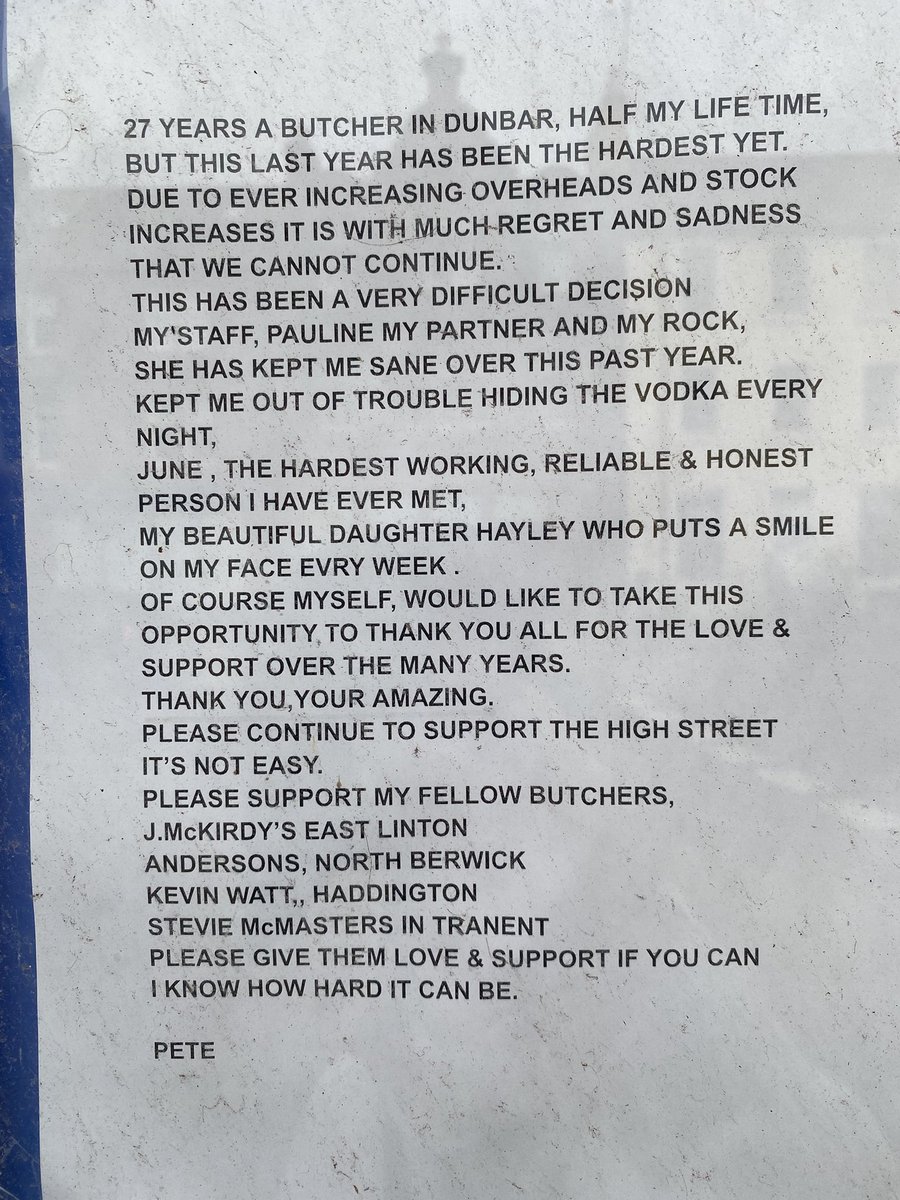 27 YEARS A BUTCHER IN DUNBAR, HALF MY LIFE TIME,
BUT THIS LAST YEAR HAS BEEN THE HARDEST YET.
DUE TO EVER INCREASING OVERHEADS AND STOCK
INCREASES IT IS WITH MUCH REGRET AND SADNESS
THAT WE CANNOT CONTINUE.
THIS HAS BEEN A VERY DIFFICULT DECISION
MY'STAFF, PAULINE MY PARTNER AND MY ROCK,
SHE HAS KEPT ME SANE OVER THIS PAST YEAR.
KEPT ME OUT OF TROUBLE HIDING THE VODKA EVERY
NIGHT,
JUNE , THE HARDEST WORKING, RELIABLE & HONEST
PERSON I HAVE EVER MET,
MY BEAUTIFUL DAUGHTER HAYLEY WHO PUTS A SMILE
ON MY FACE EVRY WEEK .
OF COURSE MYSELF, WOULD LIKE TO TAKE THIS
OPPORTUNITY TO THANK YOU ALL FOR THE LOVE &
SUPPORT OVER THE MANY YEARS.
THANK YOU,YOUR AMAZING.
PLEASE CONTINUE TO SUPPORT THE HIGH STREET
IT'S NOT EASY.
PLEASE SUPPORT MY FELLOW BUTCHERS,
J.McKIRDY'S EAST LINTON
ANDERSONS, NORTH BERWICK
KEVIN WATT,, HADDINGTON
STEVIE McMASTERS IN TRANENT
PLEASE GIVE THEM LOVE & SUPPORT IF YOU CAN
I KNOW HOW HARD IT CAN BE.
PETE